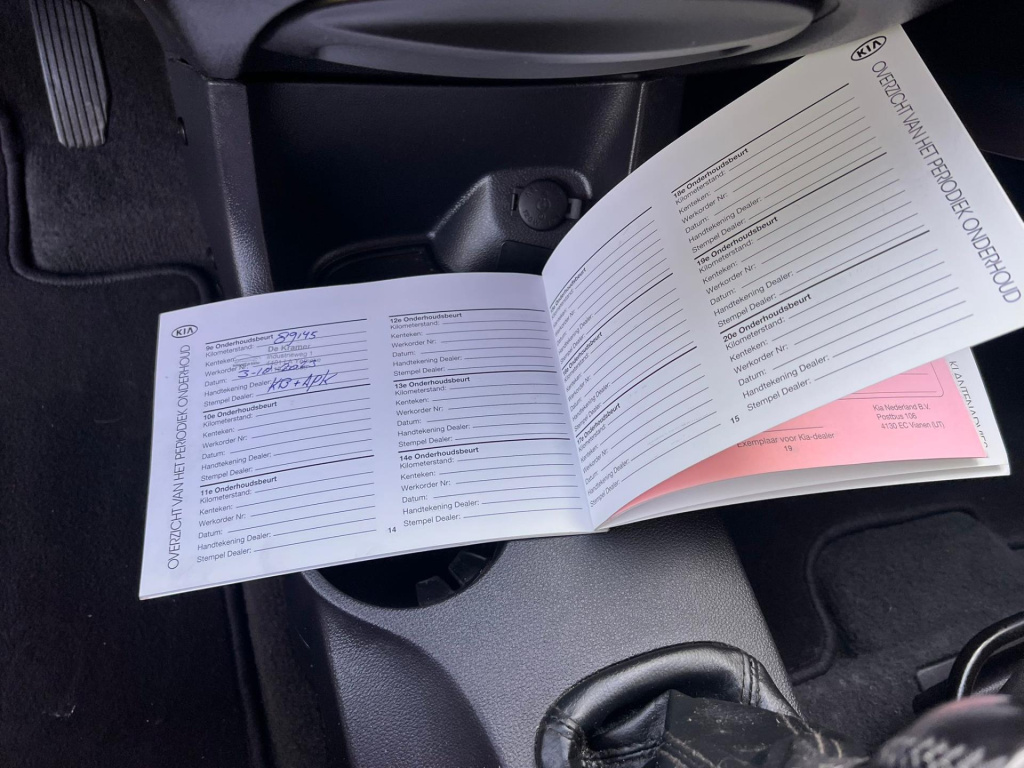 KIA
OVERZICHT VAN HET PERIODIEK ONDERHOUD
9e Onderhoudsbeurt
Kilometerstand: 89145
Kenteken:
De Kremer
Industrieweg
Werkorder Nr:
Datum: 3-10-2023
Handtekening Dealer:
Stempel Dealer: KB3 + APK
10e Onderhoudsbeurt
Kilometerstand:
Kenteken:
Werkorder Nr:
Datum:
Handtekening Dealer:
Stempel Dealer:
11e Onderhoudsbeurt
Kilometerstand:
Kenteken:
Werkorder Nr:
Datum:
Handtekening Dealer:
Stempel Dealer:
12e Onderhoudsbeurt
Kilometerstand:
Kenteken:
Werkorder Nr:
Datum:
Handtekening Dealer:
Stempel Dealer:
13e Onderhoudsbeurt
Kilometerstand:
Kenteken:
Werkorder Nr:
Datum:
Handtekening Dealer:
Stempel Dealer:
14e Onderhoudsbeurt
Kilometerstand:
Kenteken:
Werkorder Nr:
Datum:
Handtekening Dealer:
Stempel Dealer:
14
Onderhoudsbeurt
Kilometerstand:
Kenteken:
Werkorder Nr:
Datum:
Handtekening Dealer:
Stempel Dealer:
16e Onderhoudsbeurt
Kilometerstand:
Kenteken:
Werkorder Nr:
Datum:
Handtekening Dealer:
Stempel Dealer:
17e Onderhoudsbeurt
Kilometerstand:
Kenteken:
Werkorder Nr:
Datum:
Handtekening Dealer:
Stempel Dealer:
18e Onderhoudsbeurt
Kilometerstand:
Kenteken:
Werkorder Nr:
Datum:
Handtekening Dealer:
Stempel Dealer:
19e Onderhoudsbeurt
Kilometerstand:
Kenteken:
Werkorder Nr:
Datum:
Handtekening Dealer:
Stempel Dealer:
20e Onderhoudsbeurt
Kilometerstand:
Kenteken:
Werkorder Nr:
Datum:
Handtekening Dealer:
Stempel Dealer:
15
KIA
OVERZICHT VAN HET PERIODIEK ONDERHOUD
Kia Nederland B.V.
Postbus 106
4130 EC Vianen (UT)
Exemplaar voor Kia-dealer
19